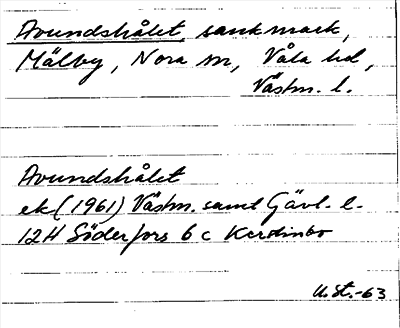 Avundshålet, sankmark,
Mälby, Nora sn, Våla hd,
Västm. l.
Avundshålet
ek (1961) Västm. samt Gävl. l.
12H Söderfors 6 c Kerdinbo
U.St.-63